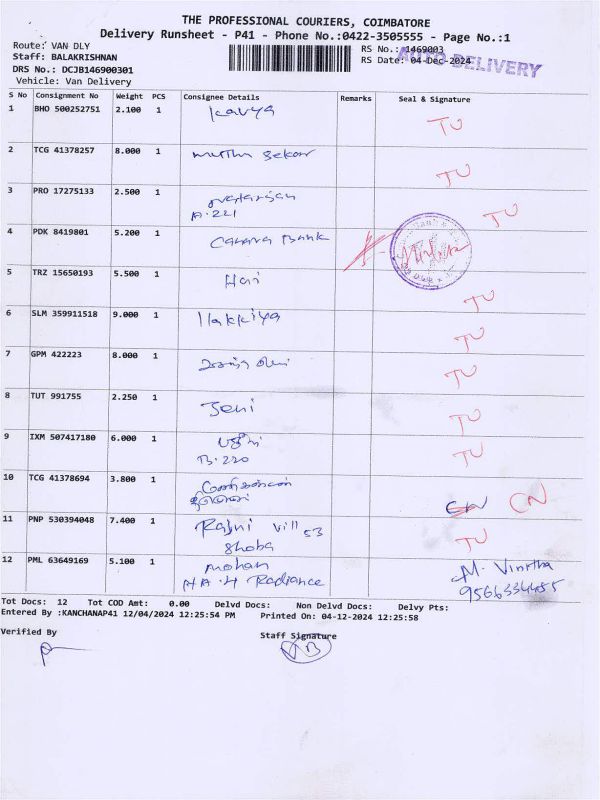 THE PROFESSIONAL COURIERS, COIMBATORE
Delivery Runsheet - P41 - Phone No.:0422-3505555 - Page No.:1
Route: VAN DLY
Staff: BALAKRISHNAN
DRS No.: DCJB146900301
Vehicle: Van Delivery
RS No.: 1469003
RS Date: 04-Dec-2024
AUTO DELIVERY
S No Consignment No Weight PCS Consignee Details Remarks Seal & Signature
1 BHO 500252751 2.100 1 Kavya TU
2 TCG 41378257 8.000 1 Muthu Sekar TU
3 PRO 17275133 2.500 1 TU
A.221
4 PDK 8419801 5.200 1 Canara Bank
5 TRZ 15650193 5.500 1 Hari TU
6 SLM 359911518 9.000 1 Ilakkiya TU
7 GPM 422223 8.000 1 TU
8 TUT 991755 2.250 1 Jeni TU
9 IXM 507417180 6.000 1 TU
B.220
10 TCG 41378694 3.800 1 CN CN
11 PNP 530394048 7.400 1 Rajni Vill 53 TU
Shoba
12 PML 63649169 5.100 1 Mohan M. Vinitha
HA.4 Radiance
Tot Docs: 12 Tot COD Amt: 0.00 Delvd Docs: Non Delvd Docs: Delvy Pts:
Entered By :KANCHANAP41 12/04/2024 12:25:54 PM Printed On: 04-12-2024 12:25:58
Verified By Staff Signature